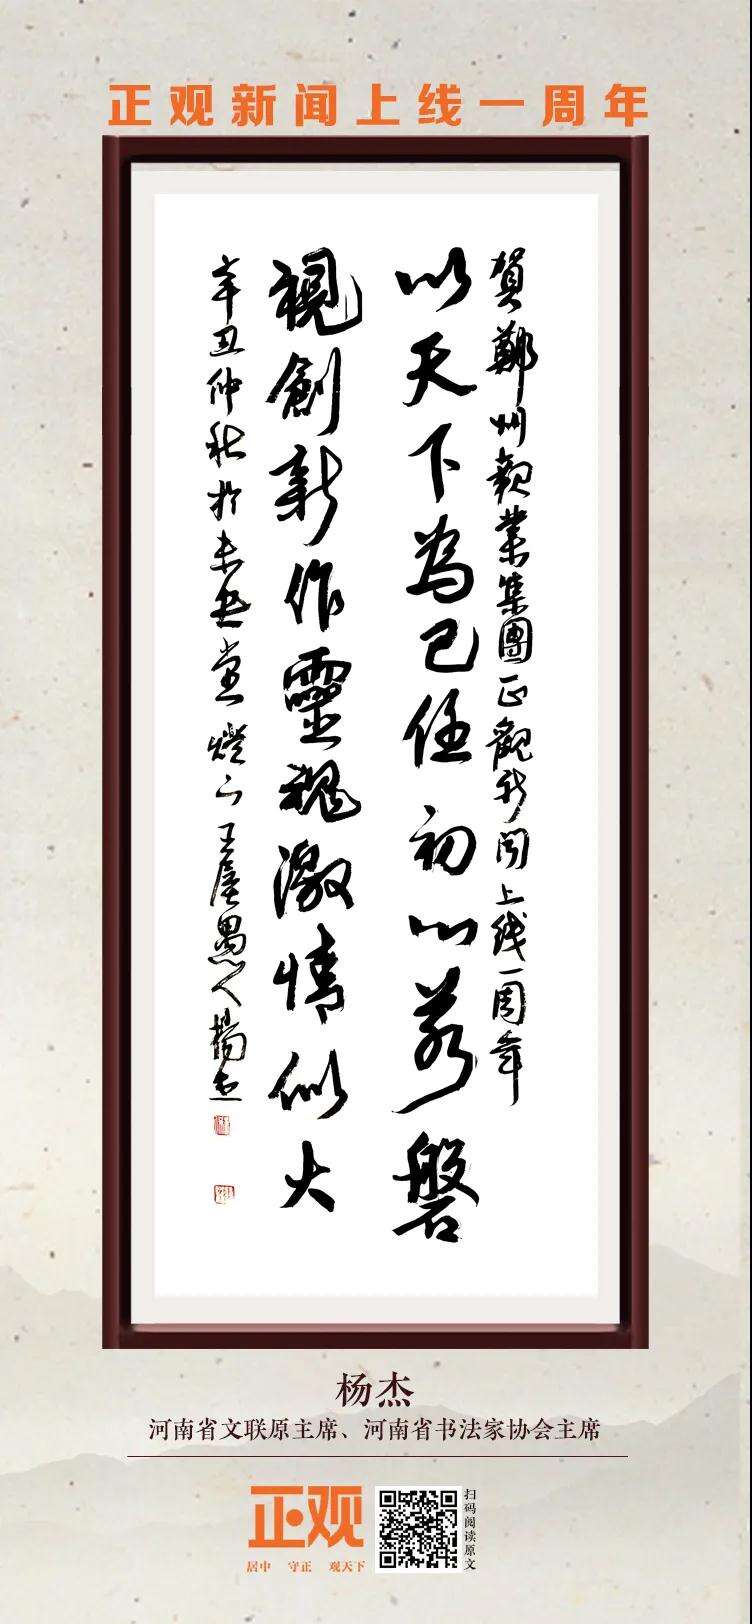 正观新闻上线一周年
賀鄭州報業集團正觀新聞上线一周年
以天下為己任初心若磐
視創新作靈魂激情似火
辛丑仲秋於未堂燈下王屋愚人楊杰
杨杰
河南省文联原主席、河南省书法家协会主席
正观
居中 守正 观天下
扫码阅读原文